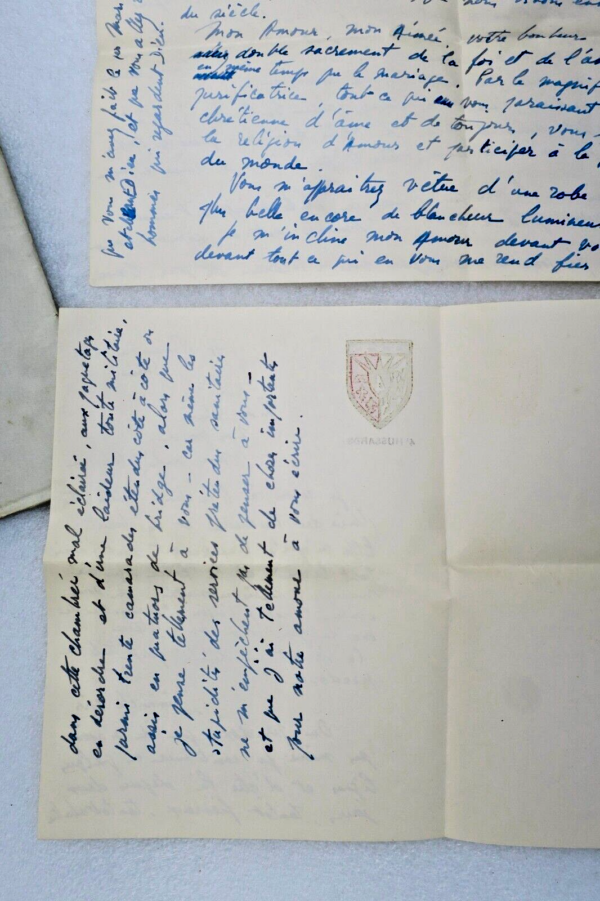 du siècle.
Mon Amour, mon Aimée, votre bonheur
double sacrement de la foi et de l'a
en même temps que le mariage. Par la magnif
purificatrice, tout ce qui en vous paraissant
chrétienne d'âme et de toujours, vous
la religion d'Amour et participer à la
du monde.
Vous m'apparaitrez vêtue d'une robe
plus belle encore de blancheur lumineu
Je m'incline mon Amour devant vo
devant tout ce qui en vous me rend fier
que vous m'avez fait
Dieu, et que vous
hommes qui regardent Dieu.
dans cette chambrée mal éclairée, aux paquetages
en désordre et d'une laideur toute militaire,
parmi trente camarades étendus côte à côte ou
assis en quatuors de bridge, alors que
je pense tellement à vous – car même les
stupidités des services prétendus sanitaires
ne m'empêchent pas de penser à vous –
et que j'ai tellement de choses importantes
pour notre amour à vous écrire.